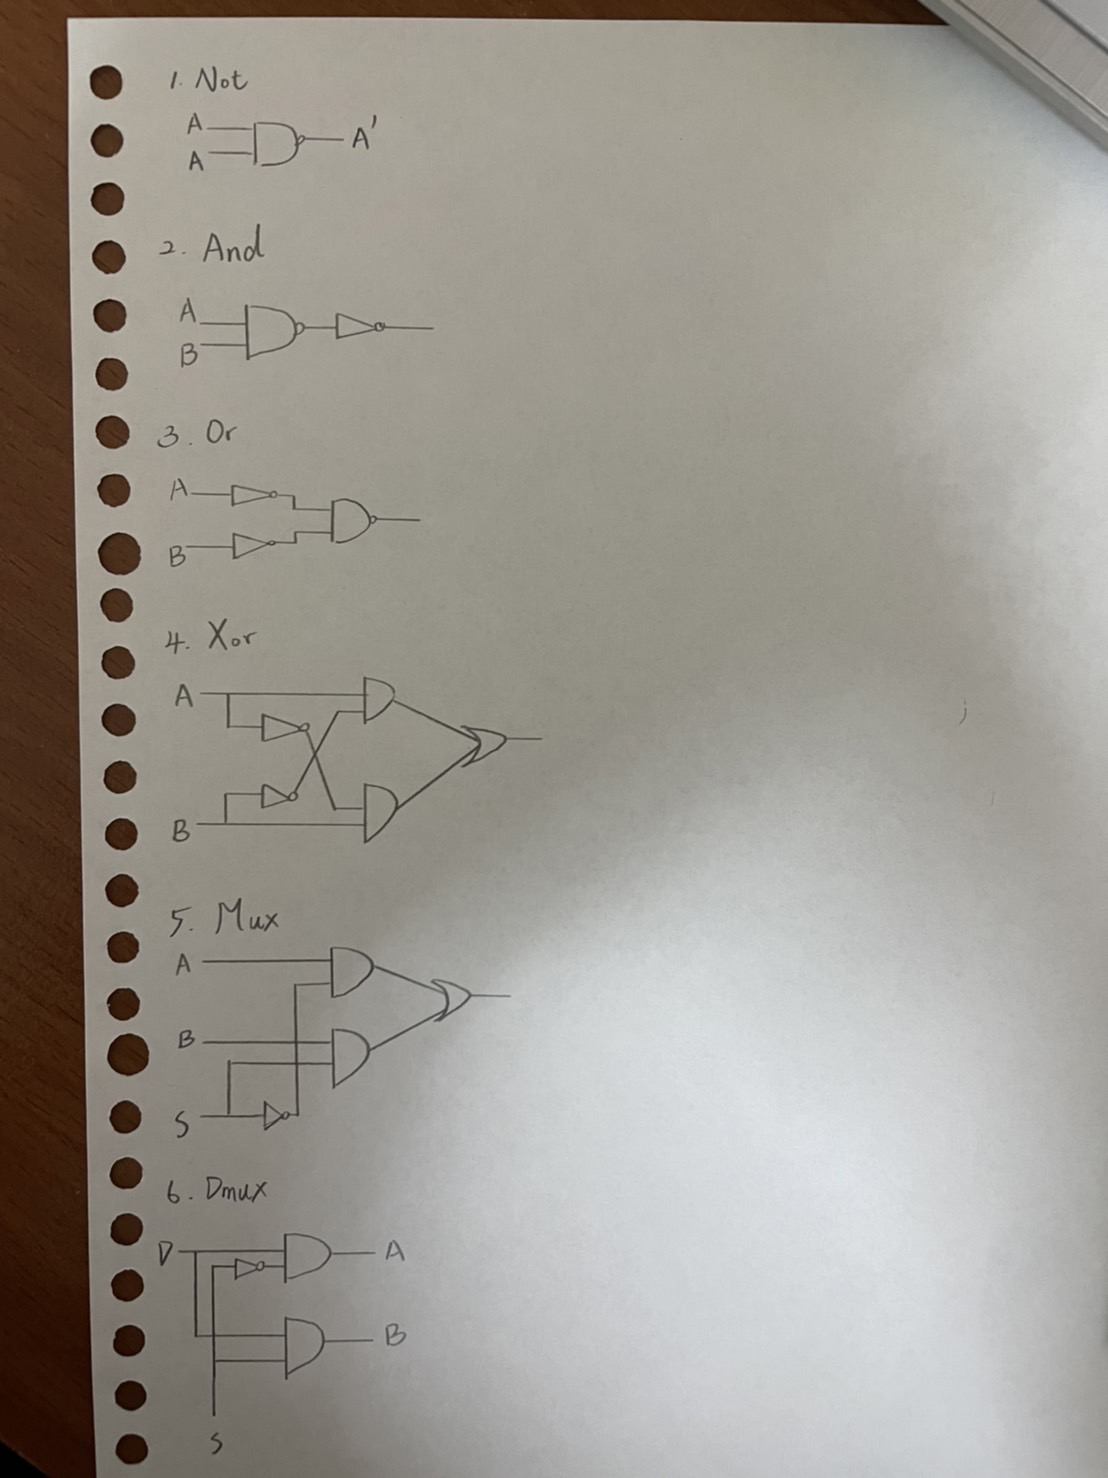 1. Not
A
A
A'
2. And
A
B
3. Or
A
B
4. Xor
A
B
5. Mux
A
B
S
6. Dmux
D
A
B
S